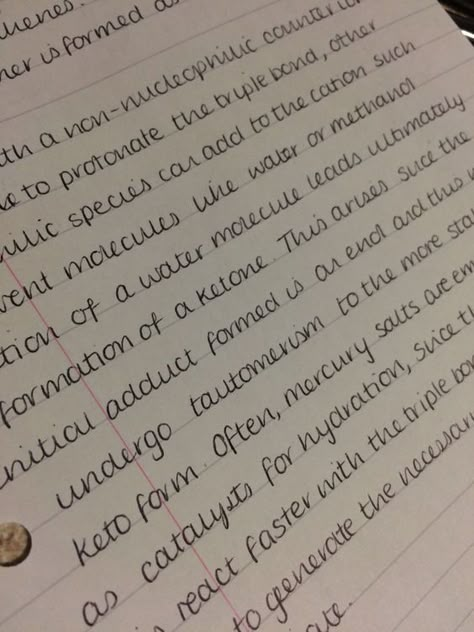 her is formed as
a non-nucleophilic counter
to protonate the triple bond, other
species can add to the cation such
molecules like water or methanol
of a water molecule leads ultimately
formation of a ketone. This arises since the
initial adduct formed is an enol and this
undergo tautomerism to the more
keto form. Often, mercury salts are
as catalysts for hydration, since
react faster with the triple
to generate the necessary